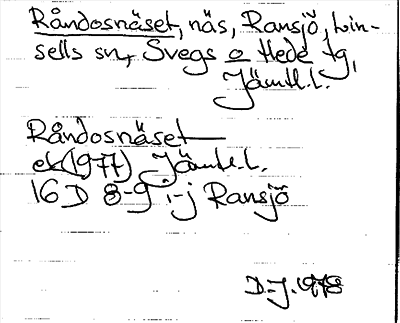 Råndosnäset, näs, Ransjö, Lin-
sells sn, Svegs o Hede tg,
Jämtl.l.
Råndosnäset
ek (1977) Jämtl.l.
16 D 8-9 i-j Ransjö
D.-J. 1978